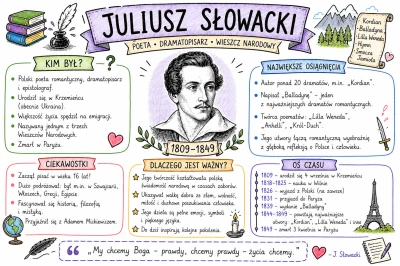 JULIUSZ SŁOWACKI
POETA • DRAMATOPISARZ • WIESZCZ NARODOWY
Kordian
-Balladyna-
-Lilla Weneda
-Hymn
KIM BYŁ?
?
• Polski poeta romantyczny, dramatopisarz
i epistolograf.
• Urodził się w Krzemieńcu
(obecnie Ukraina).
• Większość życia spędził na emigracji.
• Nazywany jednym z trzech
Wieszczów Narodowych.
• Zmarł w Paryżu.
1809–1849
NAJWIĘKSZE OSIĄGNIĘCIA
• Autor ponad 20 dramatów, m.in. „Kordian”
• Napisał „Balladynę” – jeden
z najważniejszych dramatów romantycznych.
• Twórca poematów: „Lilla Weneda”,
„Anhelli”, „Król-Duch”.
• Jego utwory łączą romantyczną wyobraźnię
z głęboką refleksją o Polsce i człowieku.
CIEKAWOSTKI
• Zaczął pisać w wieku 16 lat!
• Dużo podróżował: był m.in. w Szwajcarii,
Włoszech, Grecji, Egipcie.
• Fascynował się historią, filozofią
i mistyką.
• Przyjaźnił się z Adamem Mickiewiczem.
DLACZEGO JEST WAŻNY?
Jego twórczość kształtowała polską
świadomość narodową w czasach zaborów.
Ukazywał walkę dobra ze złem, wolność,
miłość i duchowe poszukiwania człowieka.
Jego dzieła są pełne emocji, symboli
i pięknego języka.
Do dziś inspirują kolejne pokolenia.
OŚ CZASU
1809 – urodził się 4 września w Krzemieńcu
1818-1825 – nauka w Wilnie
1826 – wyjazd z Polski (na zawsze)
1831 – przyjazd do Paryża
1839 – wydanie „Balladyny”
1844-1849 – powstają najważniejsze
utwory „Kordian”, „Lilla Weneda” i inne
1849 – zmarł 3 kwietnia w Paryżu
„My chcemy Boga – prawdy, chcemy prawdy – życia chcemy.
- J. Słowacki